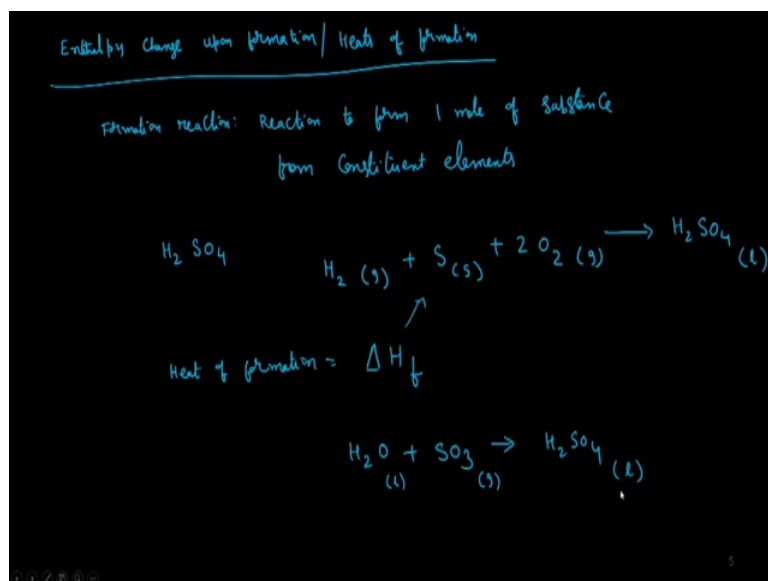 Enthalpy change upon formation / Heats of formation
Formation reaction: Reaction to form 1 mole of substance
from constituent elements
H₂SO₄ H₂ (g) + S (s) + 2 O₂ (g) → H₂SO₄ (l)
Heat of formation = ΔH_f
H₂O (l) + SO₃ (g) → H₂SO₄ (l)
5